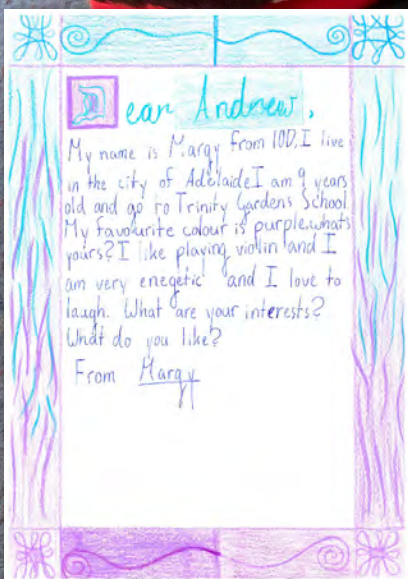 Dear Andrew,
My name is Margy from 10D, I live
in the city of Adelaide I am 9 years
old and go to Trinity Gardens School
My favourite colour is purple, whats
yours? I like playing violin and I
am very enegetic and I love to
laugh. What are your interests?
What do you like?
From Margy